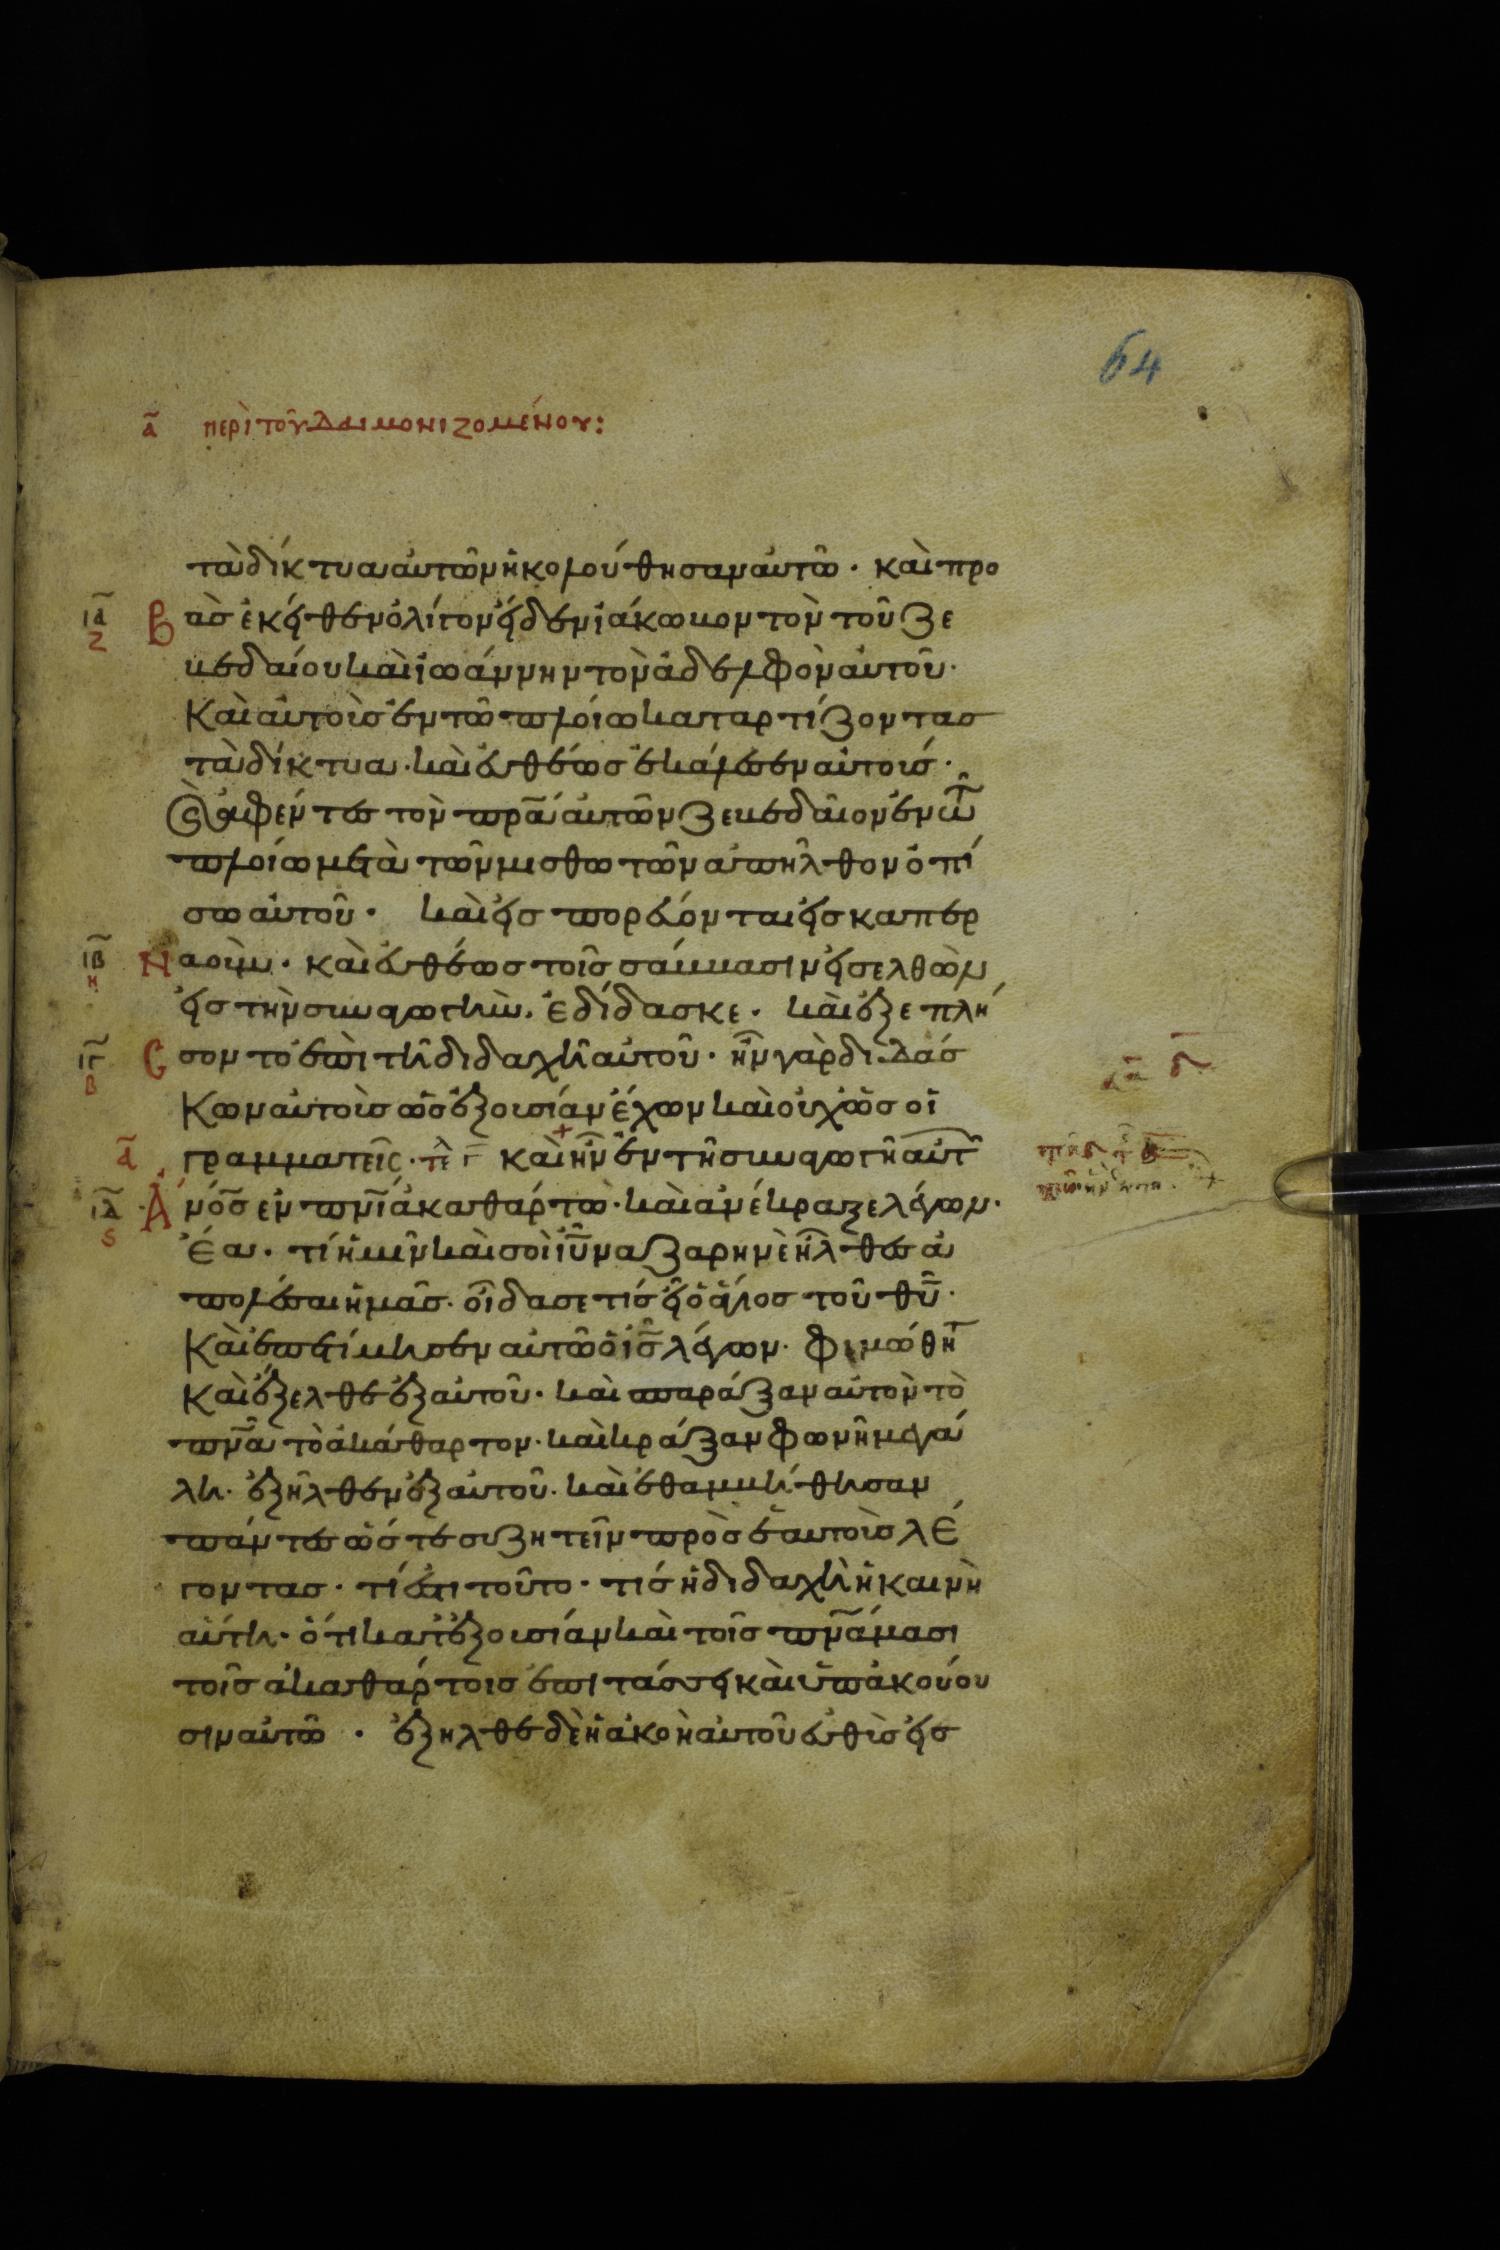 64
α̅ περὶ τοῦ δαιμονιζομένου:
τὰ δίκτυα αὐτῶν ἠκολούθησαν αὐτῶ· καὶ προ
ια̅ ζ βὰσ ἐκεῖθεν ὀλίγον εἶδεν ἰάκωβον τὸν τοῦ ζε
βεδαίου καὶ ἰωάννην τὸν ἀδελφὸν αὐτοῦ·
Καὶ αὐτοὺσ ἐν τῶ πλοίω καταρτίζοντασ
τὰ δίκτυα· καὶ εὐθέωσ ἐκάλεσεν αὐτούσ·
Καὶ ἀφέντεσ τὸν πρ̅α αὐτῶν ζεβεδαῖον ἐν τῶ
πλοίω μετὰ τῶν μισθωτῶν ἀπῆλθον ὀπί
σω αὐτοῦ· καὶ εἰσπορεύονται εἰσ καπερ
ιβ̅ η Ναούμ· καὶ εὐθέωσ τοῖσ σάββασιν εἰσελθὼν
εἰσ τὴν συναγωγὴν, ἐδίδασκε· καὶ ἐξεπλήσ
ιγ̅ β Σοντο ἐπὶ τῆ διδαχῆ αὐτοῦ· ἦν γὰρ διδάσ
Κων αὐτοὺσ ὡσ ἐξουσίαν ἔχων καὶ οὐχ ὡσ οἱ
α̅ γραμματεῖς· καὶ ἦν ἐν τῆ συναγωγῆ αὐτῶν
ιδ̅ ς Ἄνο̅σ ἐν πν̅ι ἀκαθάρτω· καὶ ἀνέκραξε λέγων·
Ἔα· τί ἡμῖν καὶ σοὶ ιυ̅ ναζαρηνὲ ἦλθεσ ἀ
πολέσαι ἡμᾶσ· οἶδα σε τίσ εἶ ὁ ἅγιοσ τοῦ θυ̅·
Καὶ ἐπετίμησεν αὐτῶ ὁ ισ̅ λέγων· φιμώθητι
Καὶ ἔξελθε ἐξ αὐτοῦ· καὶ σπαράξαν αὐτὸν τὸ
πν̅α τὸ ἀκάθαρτον· καὶ κράξαν φωνῆ μεγά
λη· ἐξῆλθεν ἐξ αὐτοῦ· καὶ ἐθαμβήθησαν
πάντεσ ὥστε συζητεῖν πρὸσ ἑαυτοὺσ λέ
γοντασ· τί ἐστι τοῦτο· τίσ ἡ διδαχὴ ἡ καινὴ
αὕτη· ὅτι κατ ἐξουσίαν καὶ τοῖσ πν̅άμασι
τοῖσ ἀκαθάρτοισ ἐπιτάσσει καὶ ὑπακούου
σιν αὐτῶ· ἐξῆλθε δὲ ἡ ἀκοὴ αὐτοῦ εὐθὺσ εἰσ